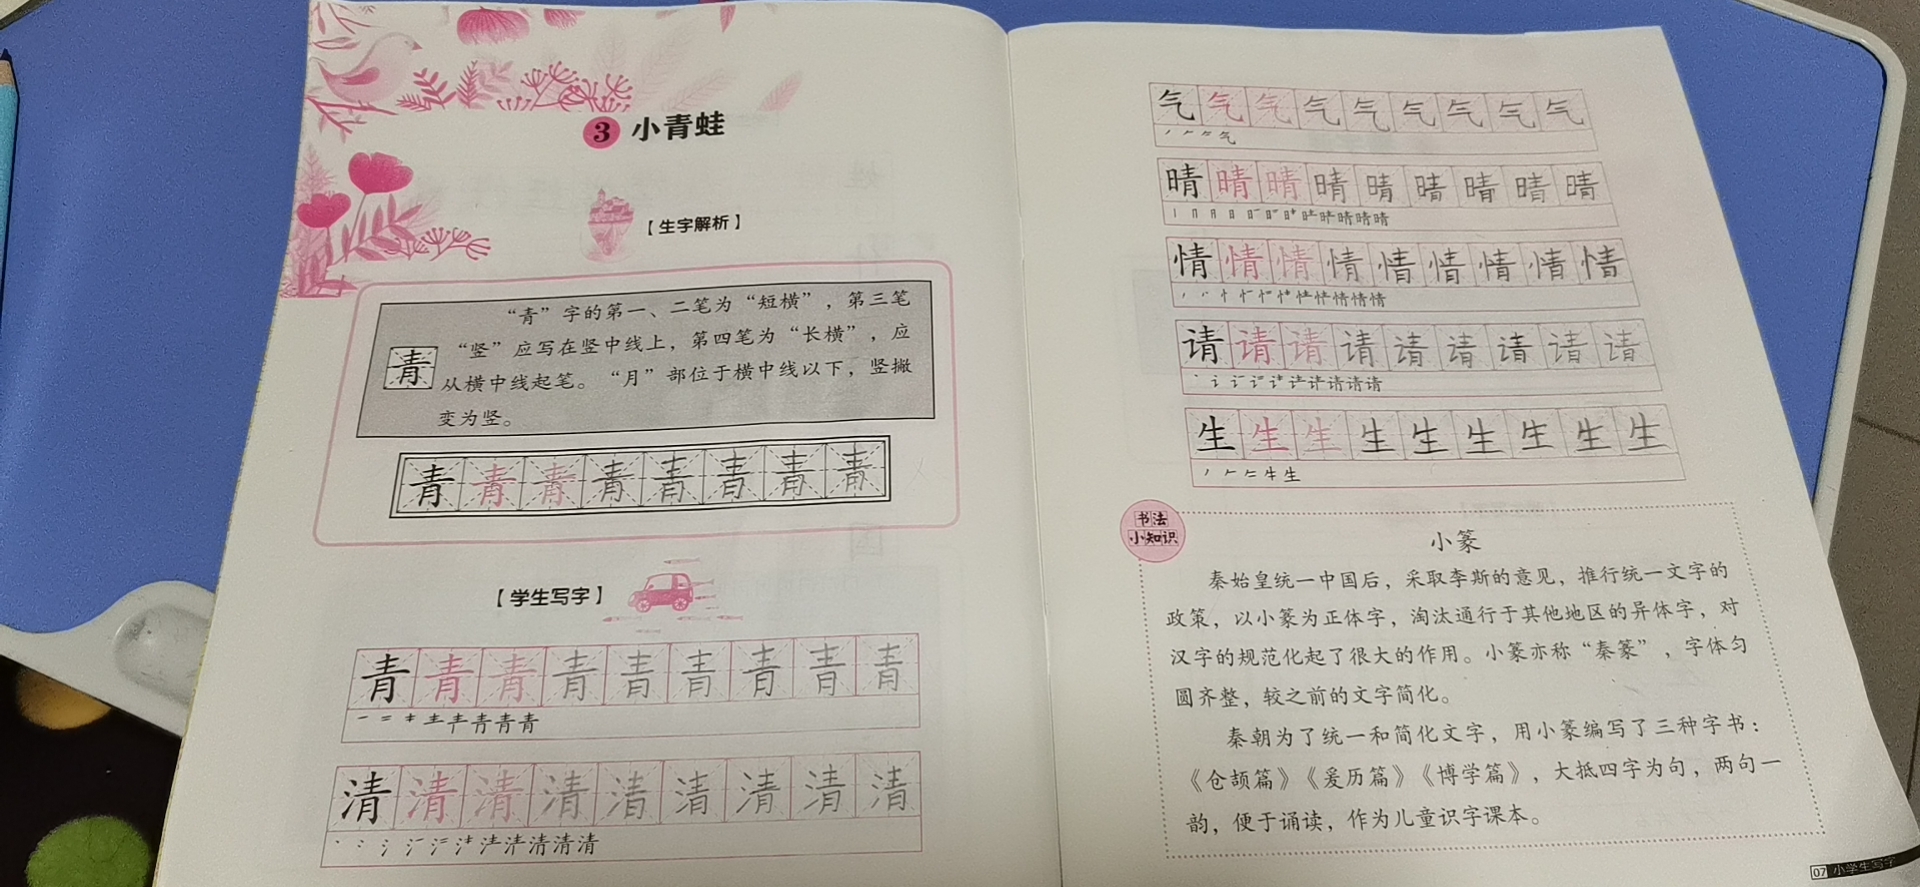 3 小青蛙
【生字解析】
“青”字的第一、二笔为“短横”，第三笔
青 “竖”应写在竖中线上，第四笔为“长横”，应
从横中线起笔。“月”部位于横中线以下，竖撇
变为竖。
青青青青青青青青
【学生写字】
青青青青青青青青青
青青青
清清清清清清清清清
清清清
气气气气气气气气气
气
晴晴晴晴晴晴晴晴晴
晴晴晴
情情情情情情情情情
情情情
请请请请请请请请请
请请请
生生生生生生生生生
牛生
书法
小知识
小篆
秦始皇统一中国后，采取李斯的意见，推行统一文字的
政策，以小篆为正体字，淘汰通行于其他地区的异体字，对
汉字的规范化起了很大的作用。小篆亦称“秦篆”，字体匀
圆齐整，较之前的文字简化。
秦朝为了统一和简化文字，用小篆编写了三种字书：
《仓颉篇》《爰历篇》《博学篇》，大抵四字为句，两句一
韵，便于诵读，作为儿童识字课本。
07 小学生写字